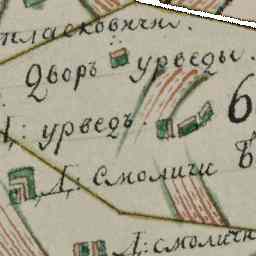 пласковичи.
Дворъ урведы.
Д: урведъ 6
Д: смоличи
Д: смоличи